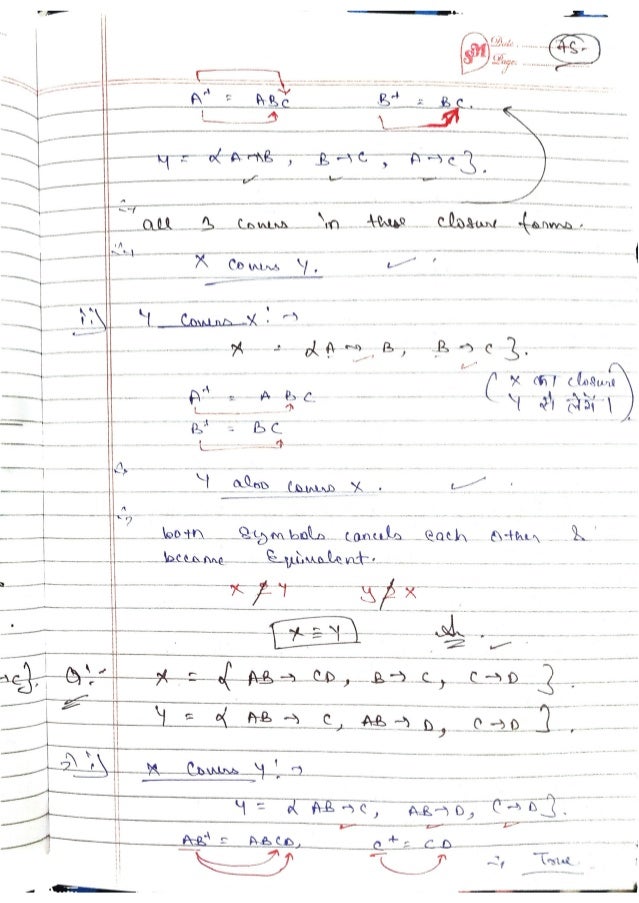 Date
Page
75
A⁺ = ABC B⁺ = BC.
Y = {A→B, B→C, A→C}.
all 3 covers in these closure forms.
X covers Y. ✓
ii) Y covers X :→
X = {A→B, B→C}.
A⁺ = ABC
(X का closure
Y से लेंगे।)
B⁺ = BC
Y also covers X. ✓
both symbols cancels each other &
become Equivalent.
X ⊉ Y Y ⊉ X
X ≡ Y Ans.
→C}. Q:- X = {AB → CD, B → C, C → D}.
Y = {AB → C, AB → D, C → D}.
i) X covers Y :→
Y = {AB→C, AB→D, C→D}.
AB⁺ = ABCD, C⁺ = CD
∴ True